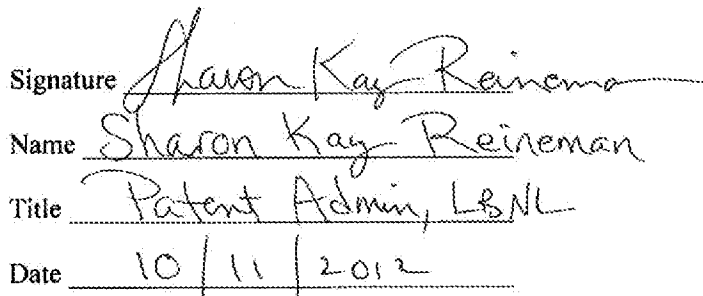 Signature Sharon Kay Reineman
Name Sharon Kay Reineman
Title Patent Admin, LBNL
Date 10/11/2012